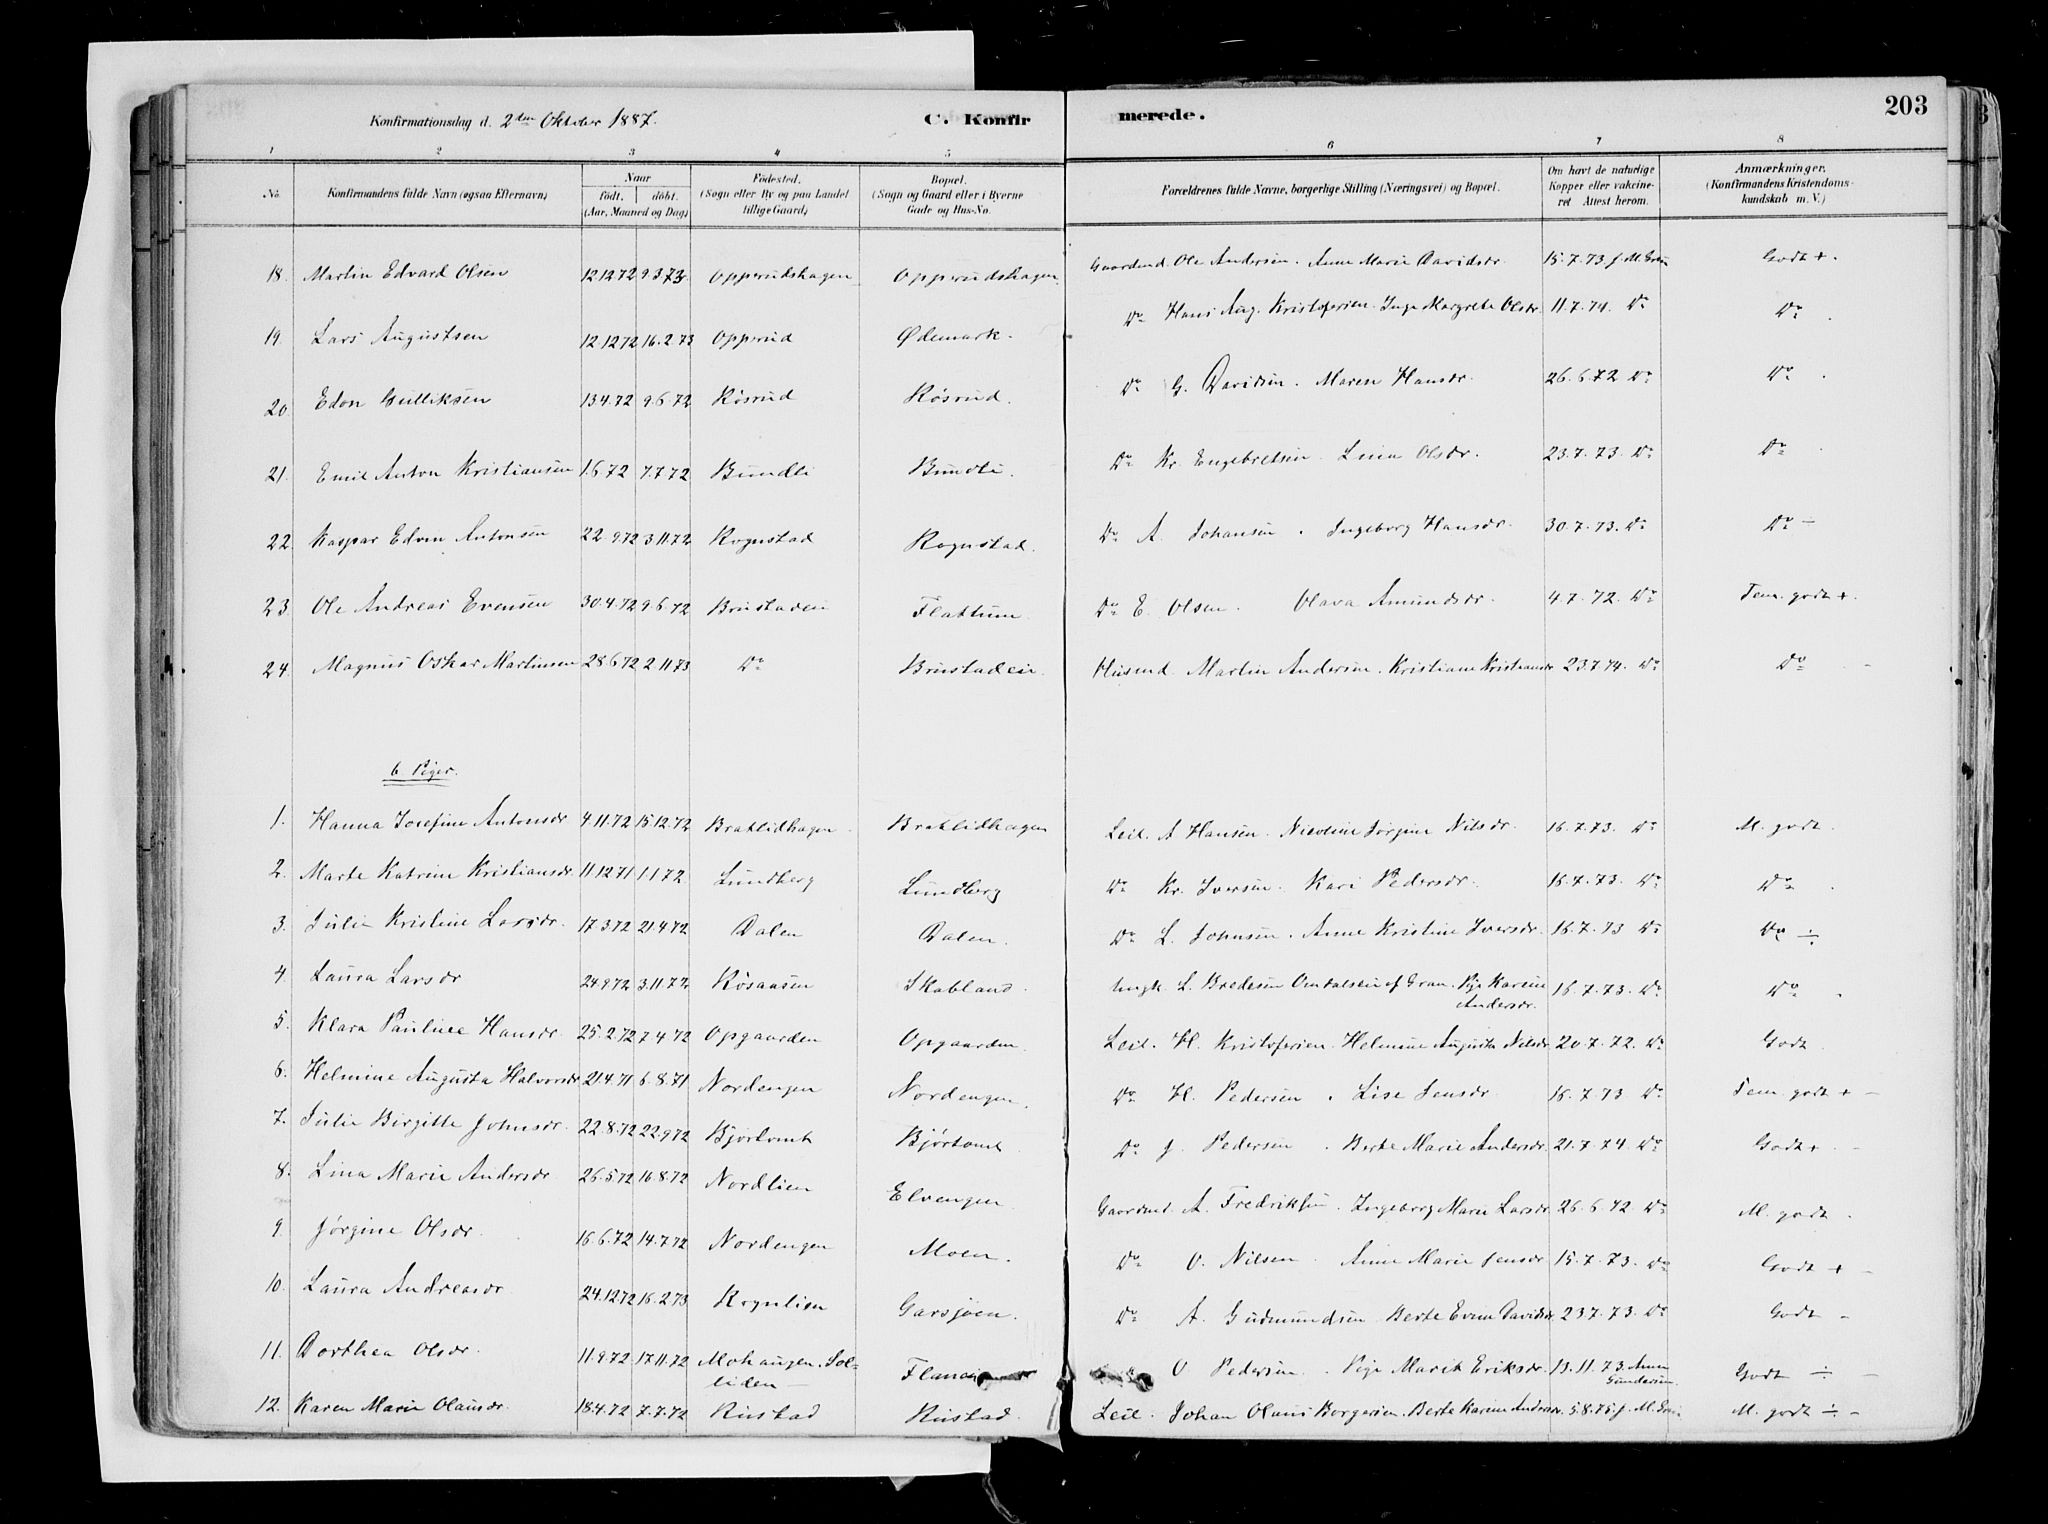 Konfirmationsdag d. 2den Oktober 1887. C. Konfirmerede. 203
1 2 3 4 5 6 7 8
No. Konfirmandens fulde Navn (ogsaa Efternavn) Naar födt, döbt. (Aar, Maaned og Dag) Födested. (Sogn eller By og paa Landet tillige Gaard) Bopæl. (Sogn og Gaard eller i Byerne Gade og Hus-No. Forældrenes fulde Navne, borgerlige Stilling (Næringsvei) og Bopæl. Om havt de naturlige Kopper eller vakcineret Attest herom. Anmærkninger. (Konfirmandens Kristendomskundskab m. V.)
18. Martin Edvard Olsen 12 12 72 9.3 73. Opperudshagen Opperudshagen. Gaardmd. Ole Andersen. Anne Marie Davidsdr. 15.7.73 f. M. Godt +.
19. Lars Augustsen 12 12 72 16.2 73 Opperud Ødemark. Do Hans Aug. Kristofersen. Inge Margrete Olsdr. 11.7.74. Do Do.
20. Edon Gulliksen 13 4.72 9.6.72 Rösrud Rösrud. Do G. Davidsen. Maren Hansdr. 26.6.72 Do Do.
21. Emil Anton Kristiansen 1.6 72 7.7 72 Bundli Bundli. Do Kr. Engebretsen. Lina Olsdr. 23.7.73. Do Do.
22. Kaspar Edvin Antonsen 22.9.72 3.11.72 Rognstad Rognstad. Do A. Johansen. Ingeborg Hansdr. 30.7.73. Do Do –
23. Ole Andreas Evensen 30.4.72 9.6.72 Brustadeie Flattum. Do E. Olsen. Olava Amundsdr. 4.7.72. Do Tem. godt +.
24. Magnus Oskar Martinsen 28.6 72 2.11 73 Do Brustadeie. Husmd. Martin Andersen. Kristiane Kristiansdr. 23.7.74. Do Do –
b Piger.
1. Hanna Josefine Antonsdr 4.11.72 15.12.72 Bratlidhagen. Bratlidhagen Leil. A Hansen. Nicoline Jörgine Nilsdr. 16.7.73. Do M. godt.
2. Marte Katrine Kristiansdr. 11.12 71 1.1 72. Lundberg Lundberg Do Kr. Iversen. Kari Pedersdr. 16.7.73. Do Do.
3. Julie Kristine Larsdr. 17.3 72 21.4 72 Dalen Dalen. Do L. Johnsen. Anne Kristine Iversdr. 16.7.73 Do Do ÷
4. Laura Larsdr 24.9 72 3.11.72 Rösaasen Skabland. Ungk. L. Bredesen Omdalseie af Gran. Pige Karine Andersdr. 16.7.73. Do Do.
5. Klara Pauline Hansdr. 25.2.72 7.4 72 Opgaarden Opgaarden. Leil. H. Kristofersen. Helmine Augusta Nilsdr. 20.7.72. Do Godt
6. Helmine Augusta Halvorsdr 21.4.71 6.8.71 Nordengen Nordengen. Do H. Pedersen. Lise Jensdr. 16.7.73 Do Tem. godt + –
7. Julie Birgitte Johnsdr. 22.8.72 22.9 72 Bjortomt Björtomt Do J. Pedersen. Berte Marie Andersdr. 21.7.74. Do Godt + –
8. Lina Marie Andersdr 26.5.72 16.8.72 Nordlien Elvengen. Gaardmd. A. Fredriksen. Ingeborg Marie Larsdr. 26.6.72 Do M. godt.
9. Jörgine Olsdr. 16.6.72 14.7.72 Nordengen Moen. Do O. Nilsen. Anne Marie Jensdr. 15.7.73. Do Godt + –
10. Laura Andreasdr 24.12 72 16.2 73 Rognlien Garsjöen. Do A. Gudmundsen. Berte Davidsdr. 23 7.73. Do Godt –
11. Dorthea Olsdr. 11.9.72 17.11.72 Mohaugen. Solliden – O Pedersen. Pige Marit Eriksdr. 13.11.73 Gundersen. Godt ÷ –
12. Karen Marie Olausdr. 18.4.72 7.7.72 Rustad Rustad. Leil. Johan Olaus Borgersen. Berte Karine Andersdr. 5.8.75 f. M. M. godt ÷ –